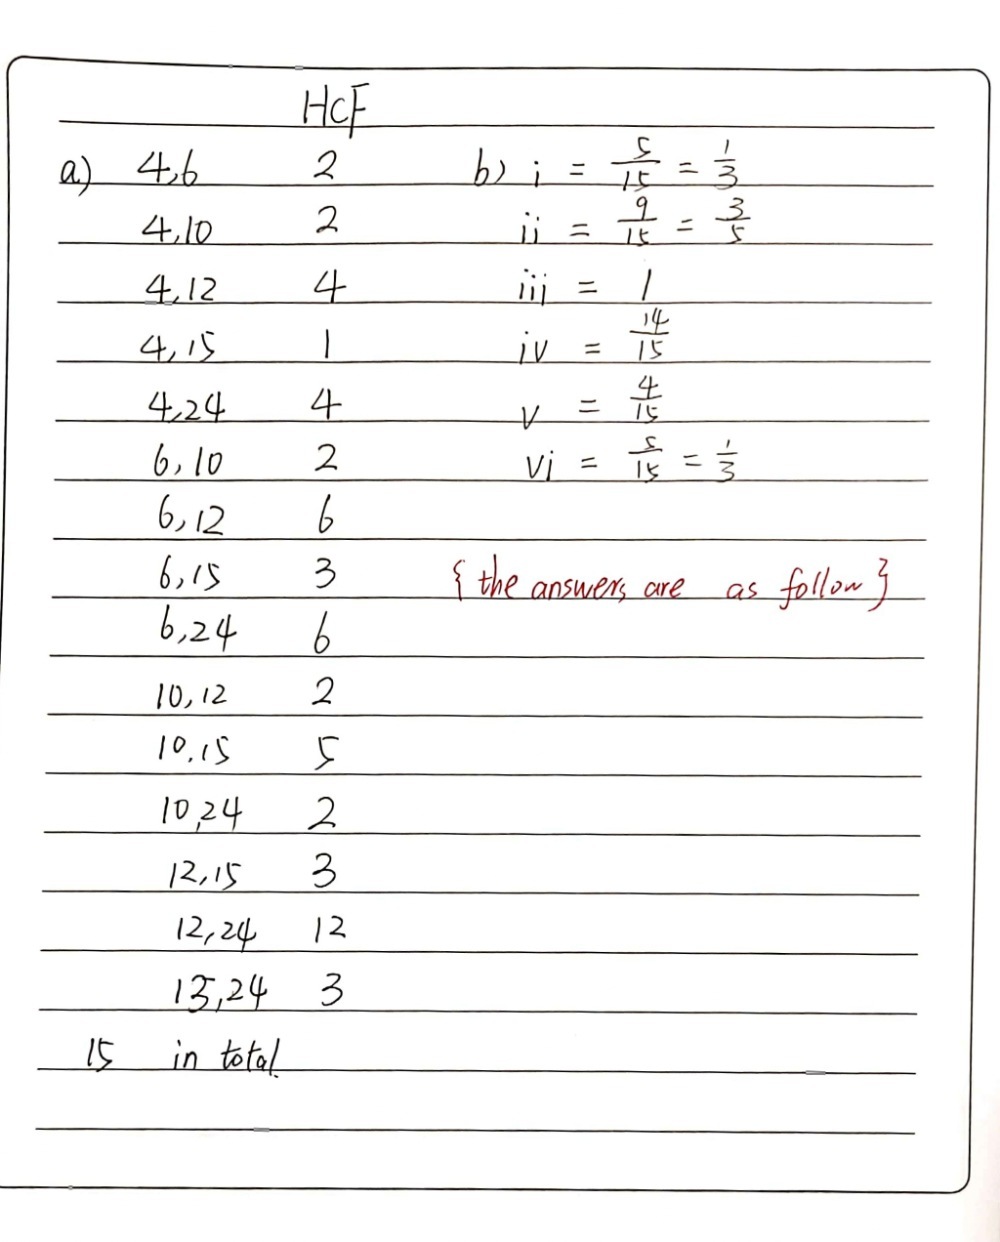 HCF
a) 4,6 2 b) i = 5/15 = 1/3
4,10 2 ii = 9/15 = 3/5
4,12 4 iii = 1
4,15 1 iv = 14/15
4,24 4 v = 4/15
6,10 2 vi = 5/15 = 1/3
6,12 6
6,15 3 { the answers are as follow }
6,24 6
10,12 2
10,15 5
10,24 2
12,15 3
12,24 12
15,24 3
15 in total.